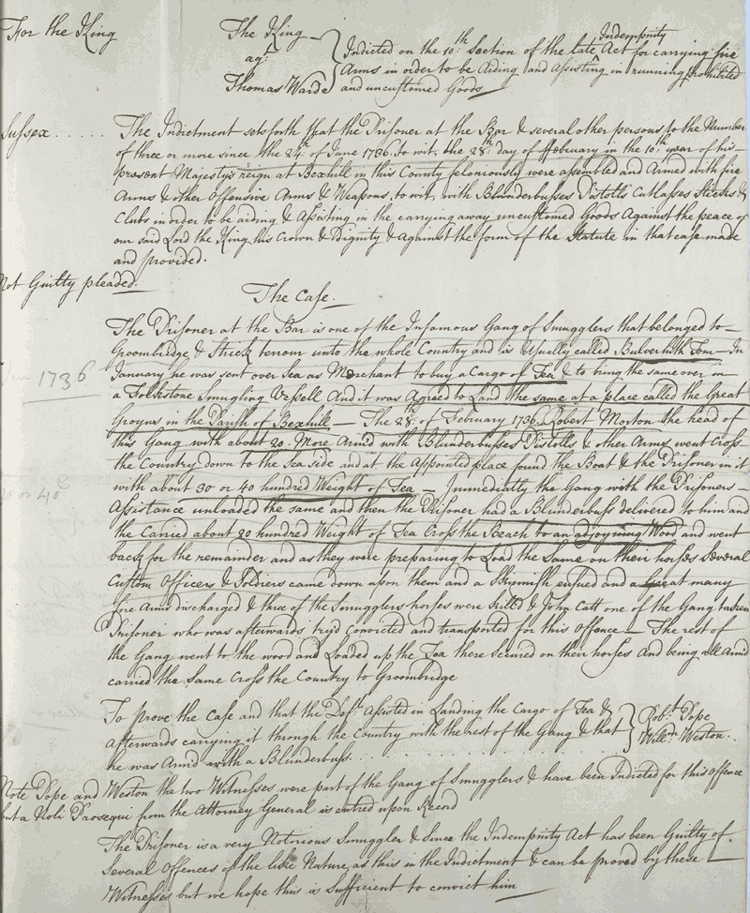 For the King
The King
agt
Thomas Warde
Indicted on the 10th: Section of the late Indempnity Act for carrying fire
Arms in order to be Aiding and Assisting in running prohibited
and uncustomed Goods
Sussex . . . . . The Indictment sets forth that the Prisoner at the Bar & several other persons to the Number
of three or more since the 24th. of June 1736. to wit, the 28th: day of ffebruary in the 10th year of his
present Majestys reign at Bexhill in this County feloniously were assembled and Armed with fire
Arms & other Offensive Arms & Weapons, to wit, with Blunderbusses Pistolls Cutlasses Sticks &
Clubs in order to be aiding & Assisting in the carrying away uncustomed Goods Against the peace of
our said Lord the King his Crown & Dignity & against the form of the Statute in that case made
and provided.
Not Guilty pleaded.
The Case.
The Prisoner at the Bar is one of the Infamous Gang of Smugglers that belonged to
Groombridge & Struck terrour unto the whole Country and is Usually called Bulverhith Tom – In
1736
January he was sent over Sea as Merchant to buy a Cargo of Tea & to bring the same over in
a Folkstone Smugling Vessell And it was Agreed to Land the same at a place called the Great
Groyns in the Parish of Bexhill – The 28th. of February 1736 Robert Moreton the head of
this Gang with about 20. More Armed with Blunderbusses Pistolls & other Arms went Cross
the Country down to the Sea side and at the Appointed place found the Boat & the Prisoner in it
30 or 40
with about 30 or 40 hundred Weight of Tea – Immediatly the Gang with the Prisoners
Assistance unloaded the same and then the Prisoner had a Blunderbuss delivered to him and
the Carried about 20 hundred Weight of Tea Cross the Beach to an adjoyning Wood and went
back for the remainder and as they were preparing to Load the Same on their horses Several
Custom Officers & Soldiers came down upon them and a Skirmish ensued and a great many
fire Arms discharged & three of the Smugglers horses were Killed & John Catt one of the Gang taken
Prisoner who was afterwards tryd Convicted and transported for this Offence – The rest of
the Gang went to the wood and Loaded up the Tea there Secured on their horses And being all Armd
carried the Same Cross the Country to Groombridge
To prove the Case and that the Deft. Assisted in Landing the Cargo of Tea &
afterwards carrying it through the Country with the rest of the Gang & that
he was Armd with a Blunderbuss. . . . . . .
Robt. Pope
Willm. Weston.
Note Pope and Weston the two Witnesses were part of the Gang of Smugglers & have been Indicted for this Offence
but a Noli Prosequi from the Attorney General is entred upon Record
The Prisoner is a very Notorious Smuggler & Since the Indempnity Act has been Guilty of
Several Offences of the like Nature as this in the Indictment & can be proved by these
Witnesses but we hope this is Sufficient to convict him